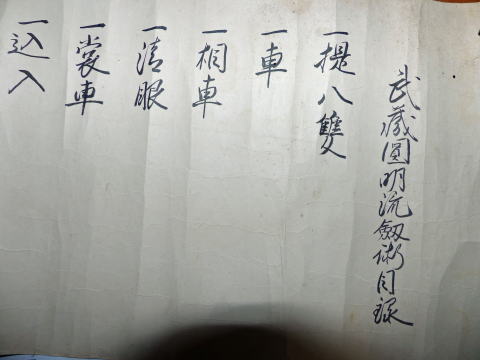 武蔵圓明流劔術目録
一提八雙
一車
一相車
一清眼
一裳車
一込入